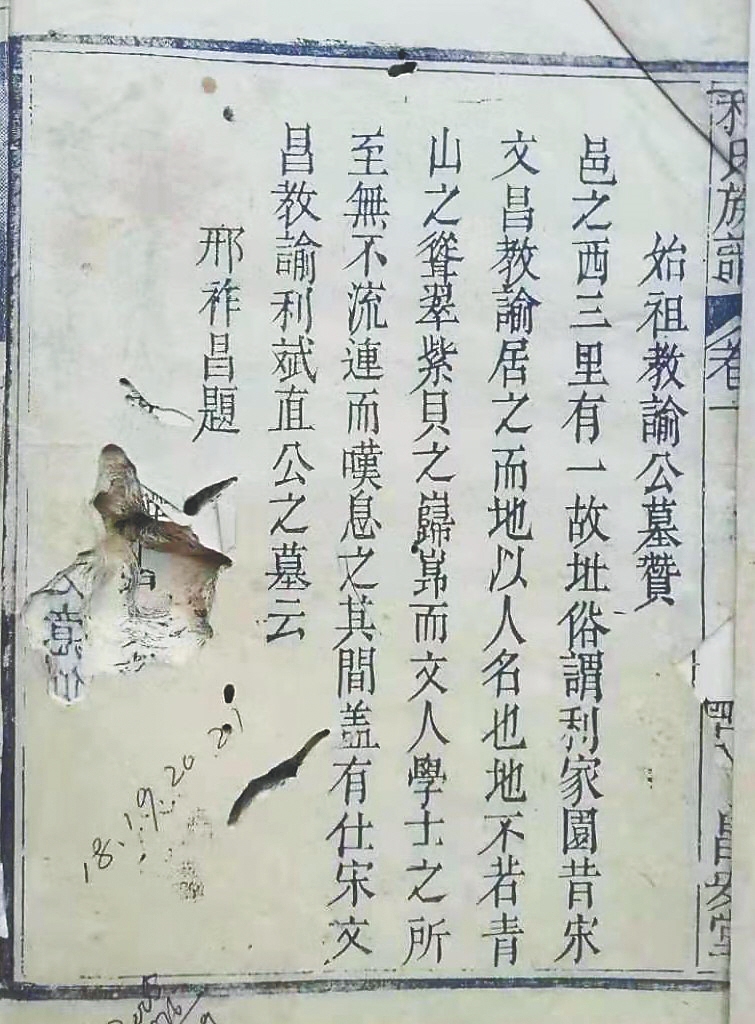 利氏族譜 卷一
始祖教諭公墓贊
邑之西三里有一故址俗謂利家園昔宋
文昌教諭居之而地以人名也地不若青
山之聳翠紫貝之巋而文人學士之所
至無不流連而嘆息之其間盖有仕宋文
昌教諭利斌直公之墓云
邢祚昌題
18.19.20 21